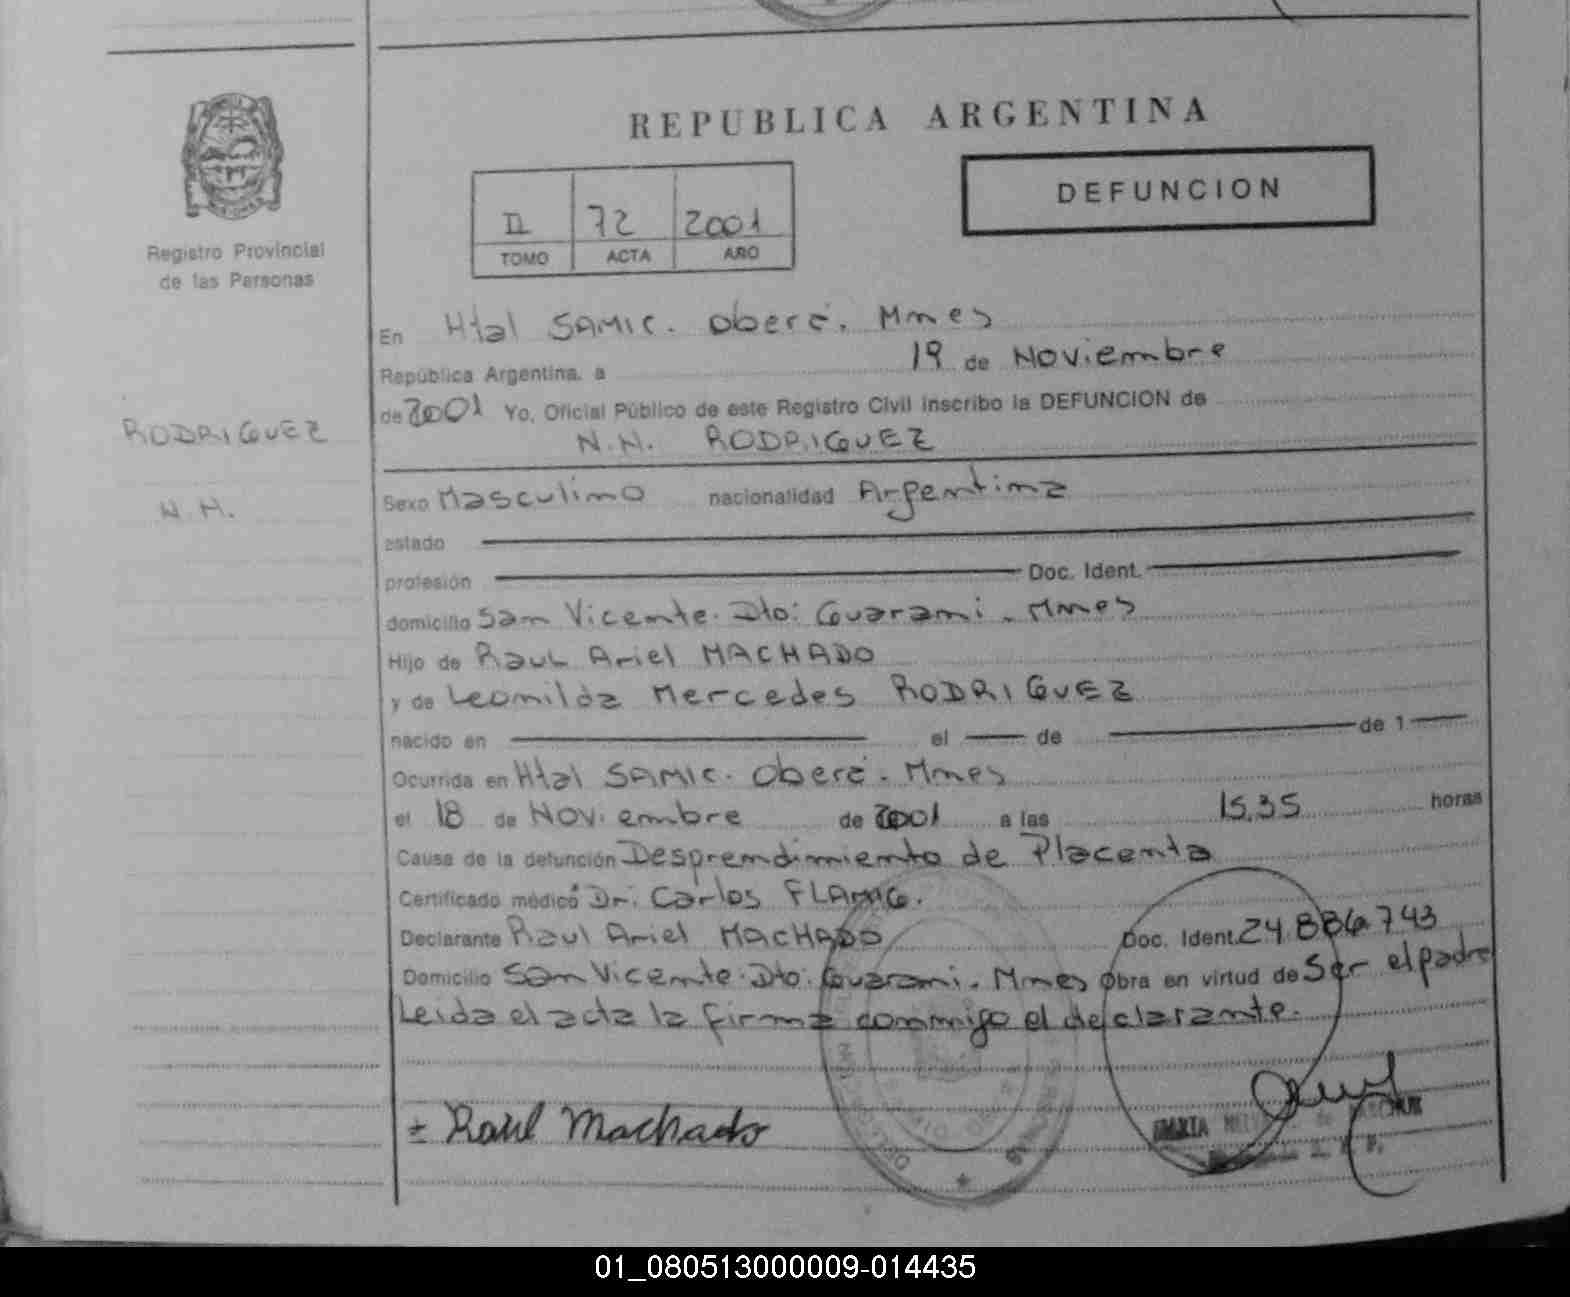 REPUBLICA ARGENTINA
DEFUNCION
II 72 2001
TOMO ACTA AÑO
Registro Provincial
de las Personas
RODRIGUEZ
N.N.
En Htal SAMIC. Oberá. Mnes
República Argentina, a 19 de Noviembre
de 2001 Yo, Oficial Público de este Registro Civil inscribo la DEFUNCION de
N.N. RODRIGUEZ
Sexo Masculino nacionalidad Argentina
estado
profesión Doc. Ident.
domicilio San Vicente. Dto: Guaraní. Mnes
Hijo de Raul Ariel MACHADO
y de Leonilda Mercedes RODRIGUEZ
nacido en el de de 1
Ocurrida en Htal SAMIC. Oberá. Mnes
el 18 de Noviembre de 2001 a las 15,35 horas
Causa de la defunción Desprendimiento de Placenta
Certificado médico Dr: Carlos
Declarante Raul Ariel MACHADO Doc. Ident. 24.886.743
Domicilio San Vicente. Dto: Guaraní. Mnes Obra en virtud de Ser el padre
Leida el acta la firma conmigo el declarante.
± Raúl Machado
01_080513000009-014435